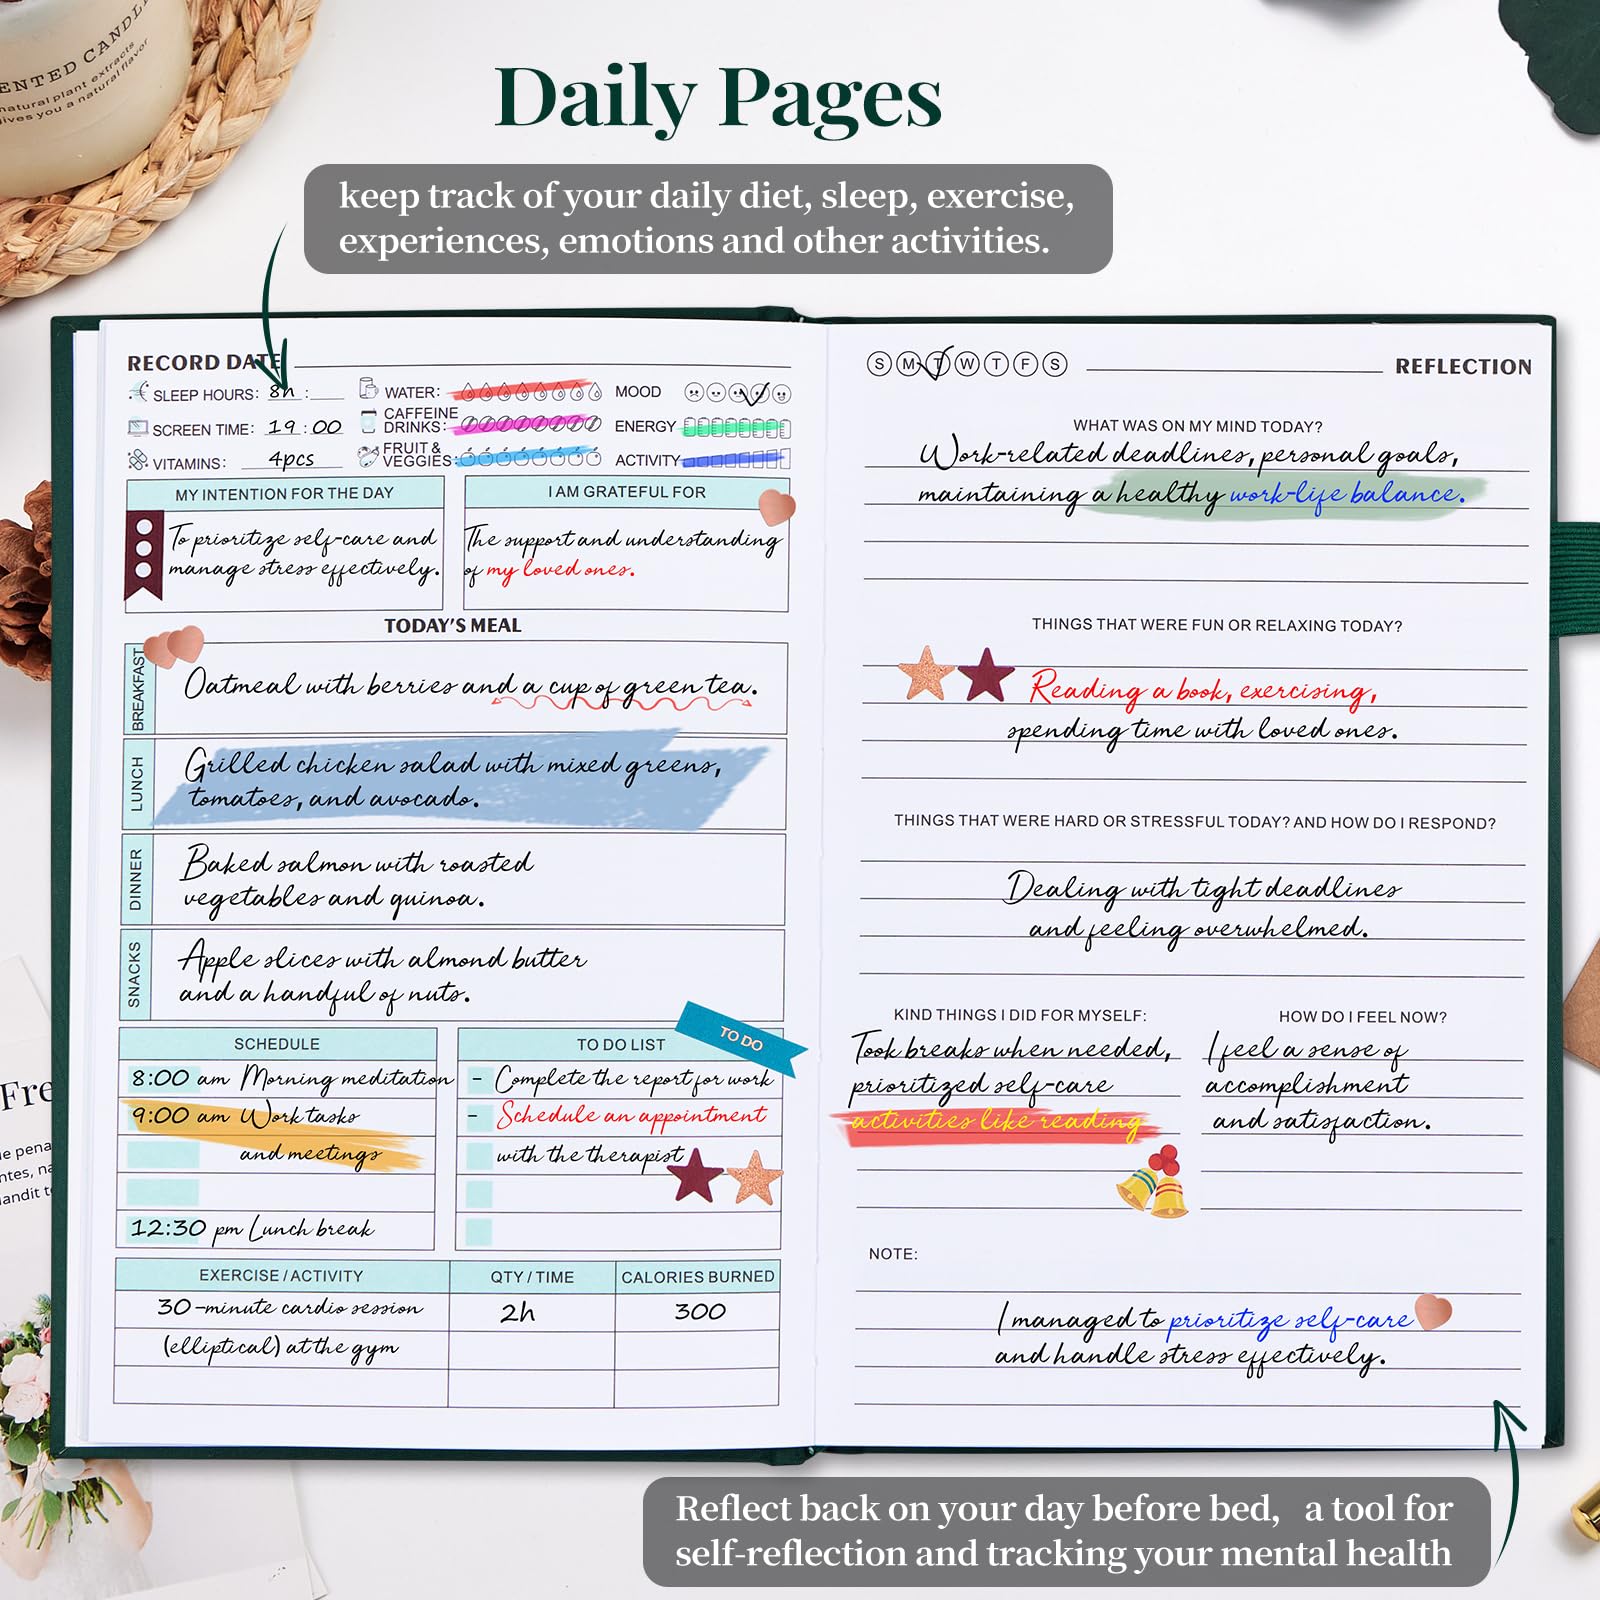 ENTED CANDL
natural plant extracts
ives you a natural flavor
Daily Pages
keep track of your daily diet, sleep, exercise,
experiences, emotions and other activities.
RECORD DATE
SLEEP HOURS: 8h :
WATER:
MOOD
SCREEN TIME: 19:00
CAFFEINE
DRINKS:
ENERGY
VITAMINS: 4pcs
FRUIT &
VEGGIES:
ACTIVITY
MY INTENTION FOR THE DAY
To prioritize self-care and
manage stress effectively.
I AM GRATEFUL FOR
The support and understanding
of my loved ones.
TODAY'S MEAL
BREAKFAST
Oatmeal with berries and a cup of green tea.
LUNCH
Grilled chicken salad with mixed greens,
tomatoes, and avocado.
DINNER
Baked salmon with roasted
vegetables and quinoa.
SNACKS
Apple slices with almond butter
and a handful of nuts.
SCHEDULE
8:00 am Morning meditation
9:00 am Work tasks
and meetings
12:30 pm Lunch break
TO DO LIST
TO DO
- Complete the report for work
- Schedule an appointment
with the therapist
EXERCISE / ACTIVITY
QTY / TIME
CALORIES BURNED
30-minute cardio session
2h
300
(elliptical) at the gym
S M T W T F S
REFLECTION
WHAT WAS ON MY MIND TODAY?
Work-related deadlines, personal goals,
maintaining a healthy work-life balance.
THINGS THAT WERE FUN OR RELAXING TODAY?
Reading a book, exercising,
spending time with loved ones.
THINGS THAT WERE HARD OR STRESSFUL TODAY? AND HOW DO I RESPOND?
Dealing with tight deadlines
and feeling overwhelmed.
KIND THINGS I DID FOR MYSELF:
Took breaks when needed,
prioritized self-care
activities like reading
HOW DO I FEEL NOW?
I feel a sense of
accomplishment
and satisfaction.
NOTE:
I managed to prioritize self-care
and handle stress effectively.
Reflect back on your day before bed, a tool for
self-reflection and tracking your mental health
Fre